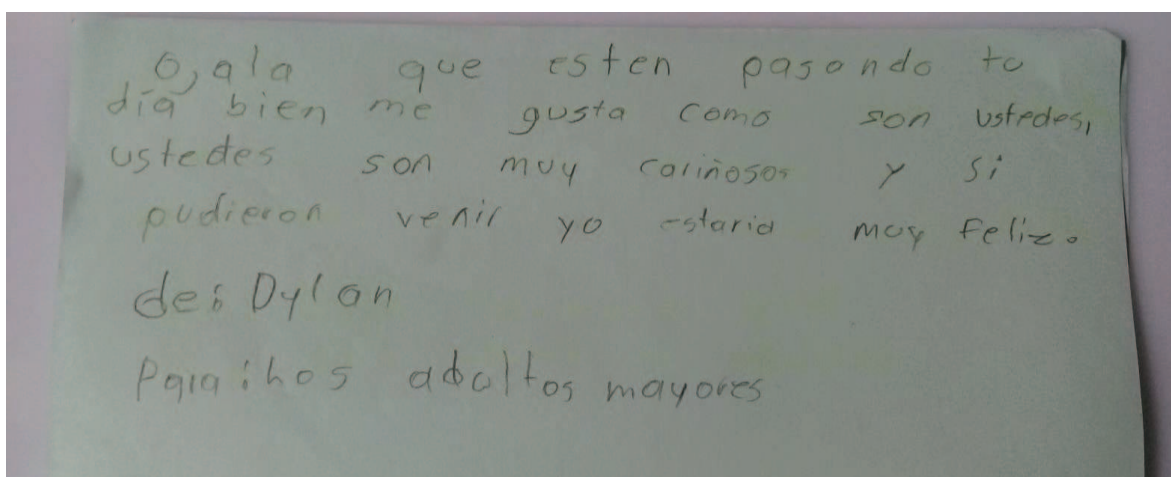 Ojala que esten pasando tu
día bien me gusta como son ustedes,
ustedes son muy cariñosos y si
pudieron venir yo estaria muy feliz.
de: Dylan
Para: hos adultos mayores